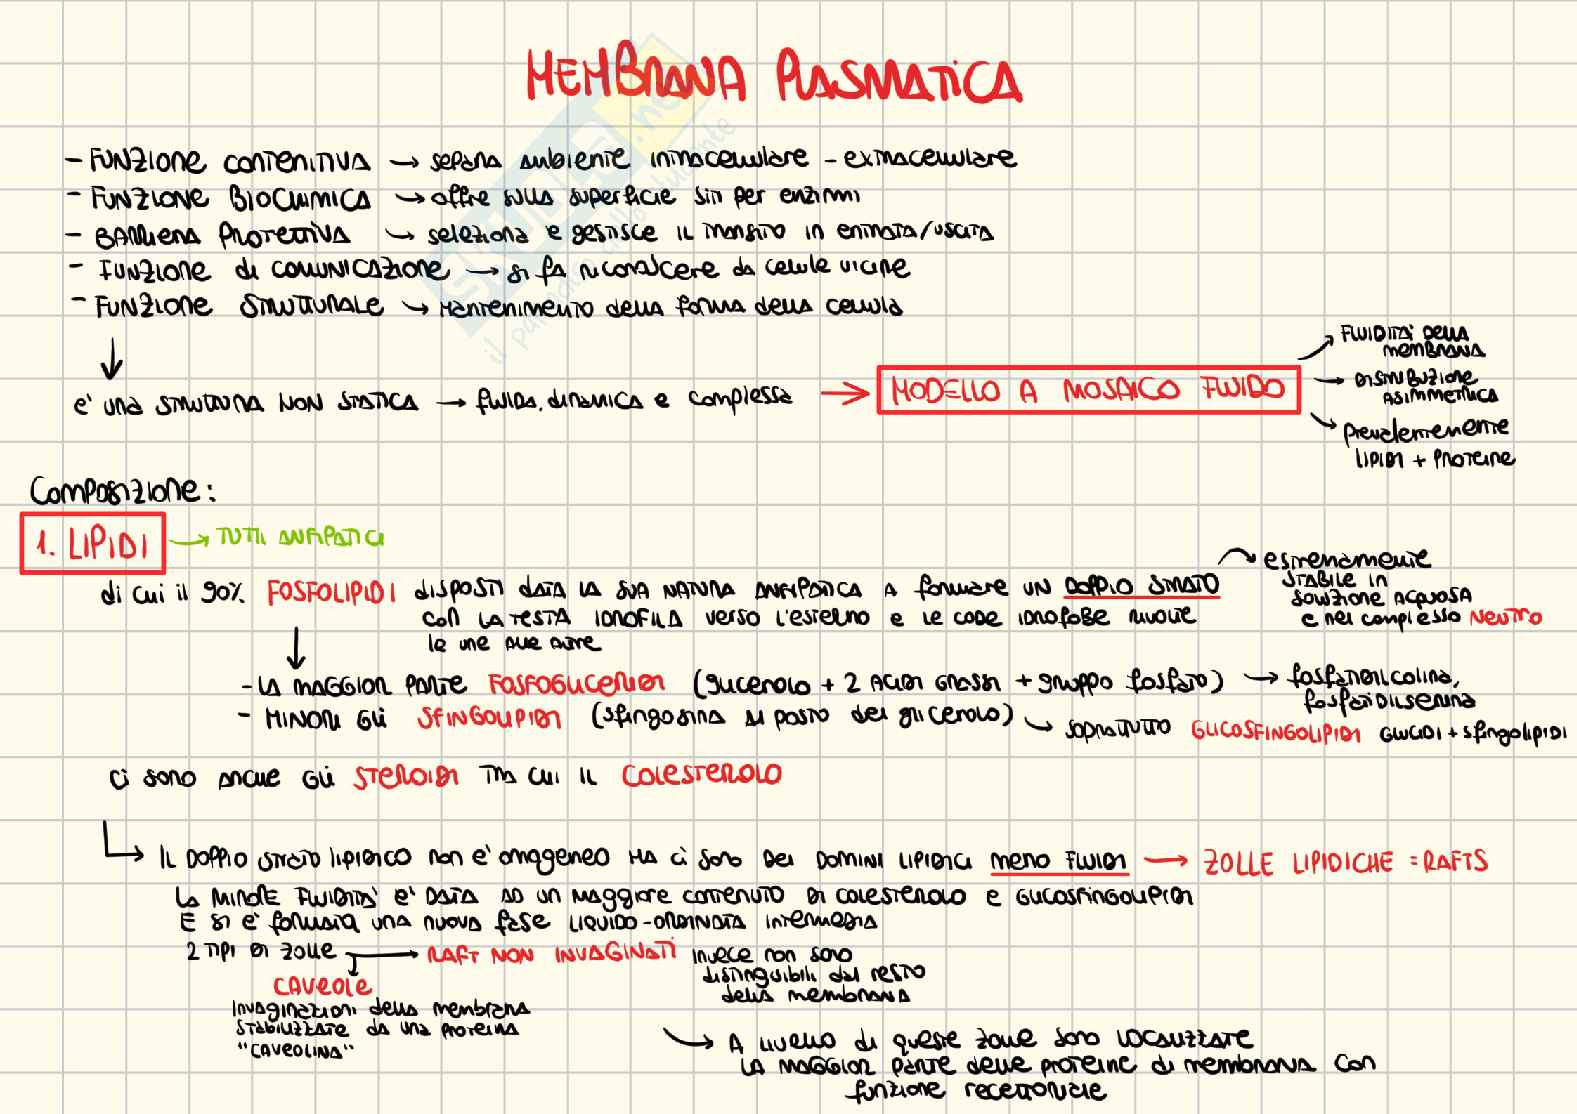 MEMBRANA PLASMATICA
- FUNZIONE CONTENITIVA → separa ambiente intracellulare - extracellulare
- FUNZIONE BIOCHIMICA → offre sulla superficie siti per enzimi
- BARRIERA PROTETTIVA → seleziona e gestisce il transito in entrata/uscita
- FUNZIONE di COMUNICAZIONE → si fa riconoscere da cellule vicine
- FUNZIONE STRUTTURALE → mantenimento della forma della cellula
è una STRUTTURA NON STATICA → fluida, dinamica e complessa → MODELLO A MOSAICO FLUIDO
→ FLUIDITÀ DELLA
MEMBRANA
→ DISTRIBUZIONE
ASIMMETRICA
→ prevalentemente
LIPIDI + PROTEINE
Composizione:
1. LIPIDI → TUTTI ANFIPATICI
di cui il 90% FOSFOLIPIDI disposti data la sua natura anfipatica a formare un DOPPIO STRATO
→ estremamente
STABILE in
soluzione acquosa
e nel complesso NEUTRO
con la testa idrofila verso l'esterno e le code idrofobe rivolte
le une alle altre
- LA MAGGIOR PARTE FOSFOGLICERIDI (glicerolo + 2 acidi grassi + gruppo fosfato) → fosfatidilcolina,
fosfatidilserina
- MINORI GLI SFINGOLIPIDI (sfingosina al posto del glicerolo) → SOPRATTUTTO GLICOSFINGOLIPIDI GLUCIDI + sfingolipidi
ci sono anche gli STEROIDI tra cui il COLESTEROLO
→ IL DOPPIO strato lipidico non è omogeneo ma ci sono dei domini lipidici MENO FLUIDI → ZOLLE LIPIDICHE = RAFTS
La minore fluidità è data ad un maggiore contenuto di colesterolo e glicosfingolipidi
E si è formata una nuova fase liquido-ordinata intermedia
2 TIPI DI zolle → RAFT NON INVAGINATI invece non sono
distinguibili dal resto
della membrana
CAVEOLE
Invaginazioni della membrana
stabilizzate da una proteina
"CAVEOLINA"
→ A livello di queste zolle sono localizzate
la maggior parte delle proteine di membrana con
funzione recettoriale